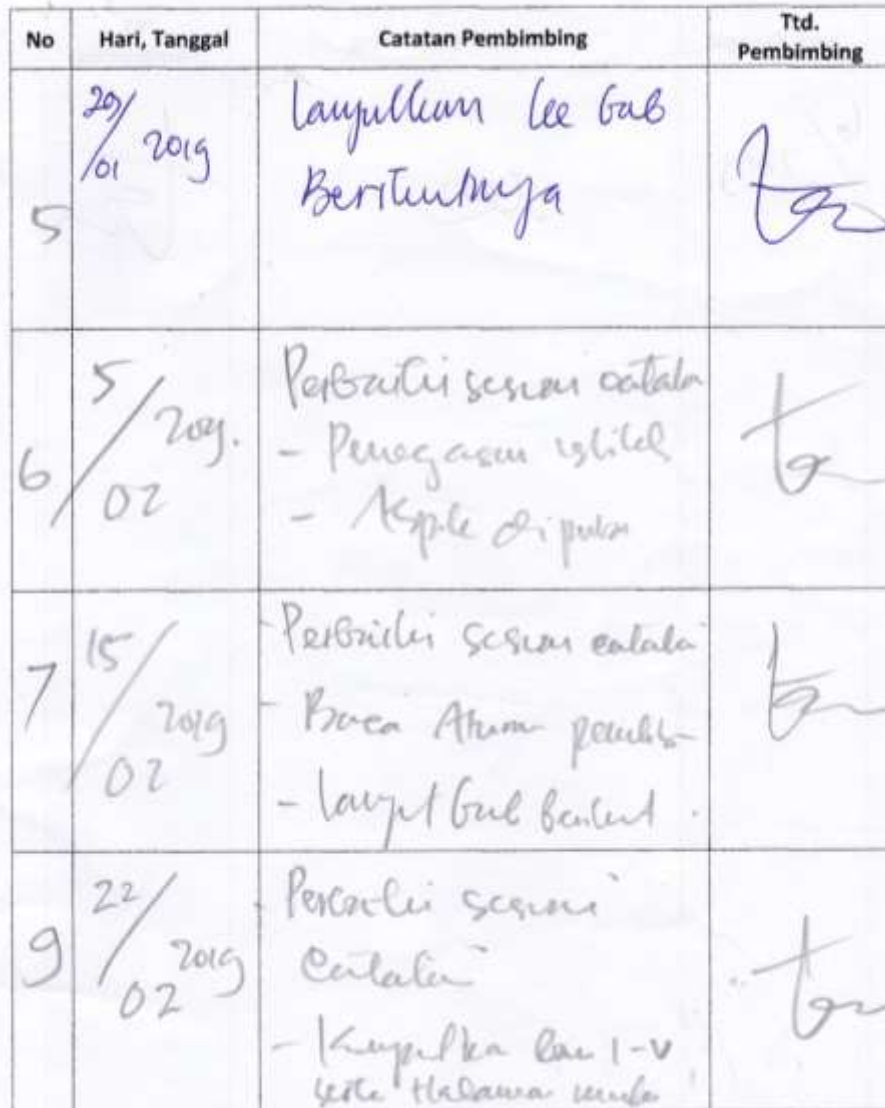 No Hari, Tanggal Catatan Pembimbing Ttd. Pembimbing
5 29/01 2019 Lanjutkan ke bab
Berikutnya
6 5/02 2019. Perbaiki sesuai catatan
- Penegasan istilah
-
7 15/02 2019 - Perbaiki sesuai catatan
- Baca Aturan
- Lanjut bab berikut.
9 22/02 2019 - Perbaiki sesuai
Catatan
- Kumpulkan bab I-V
serta Halaman